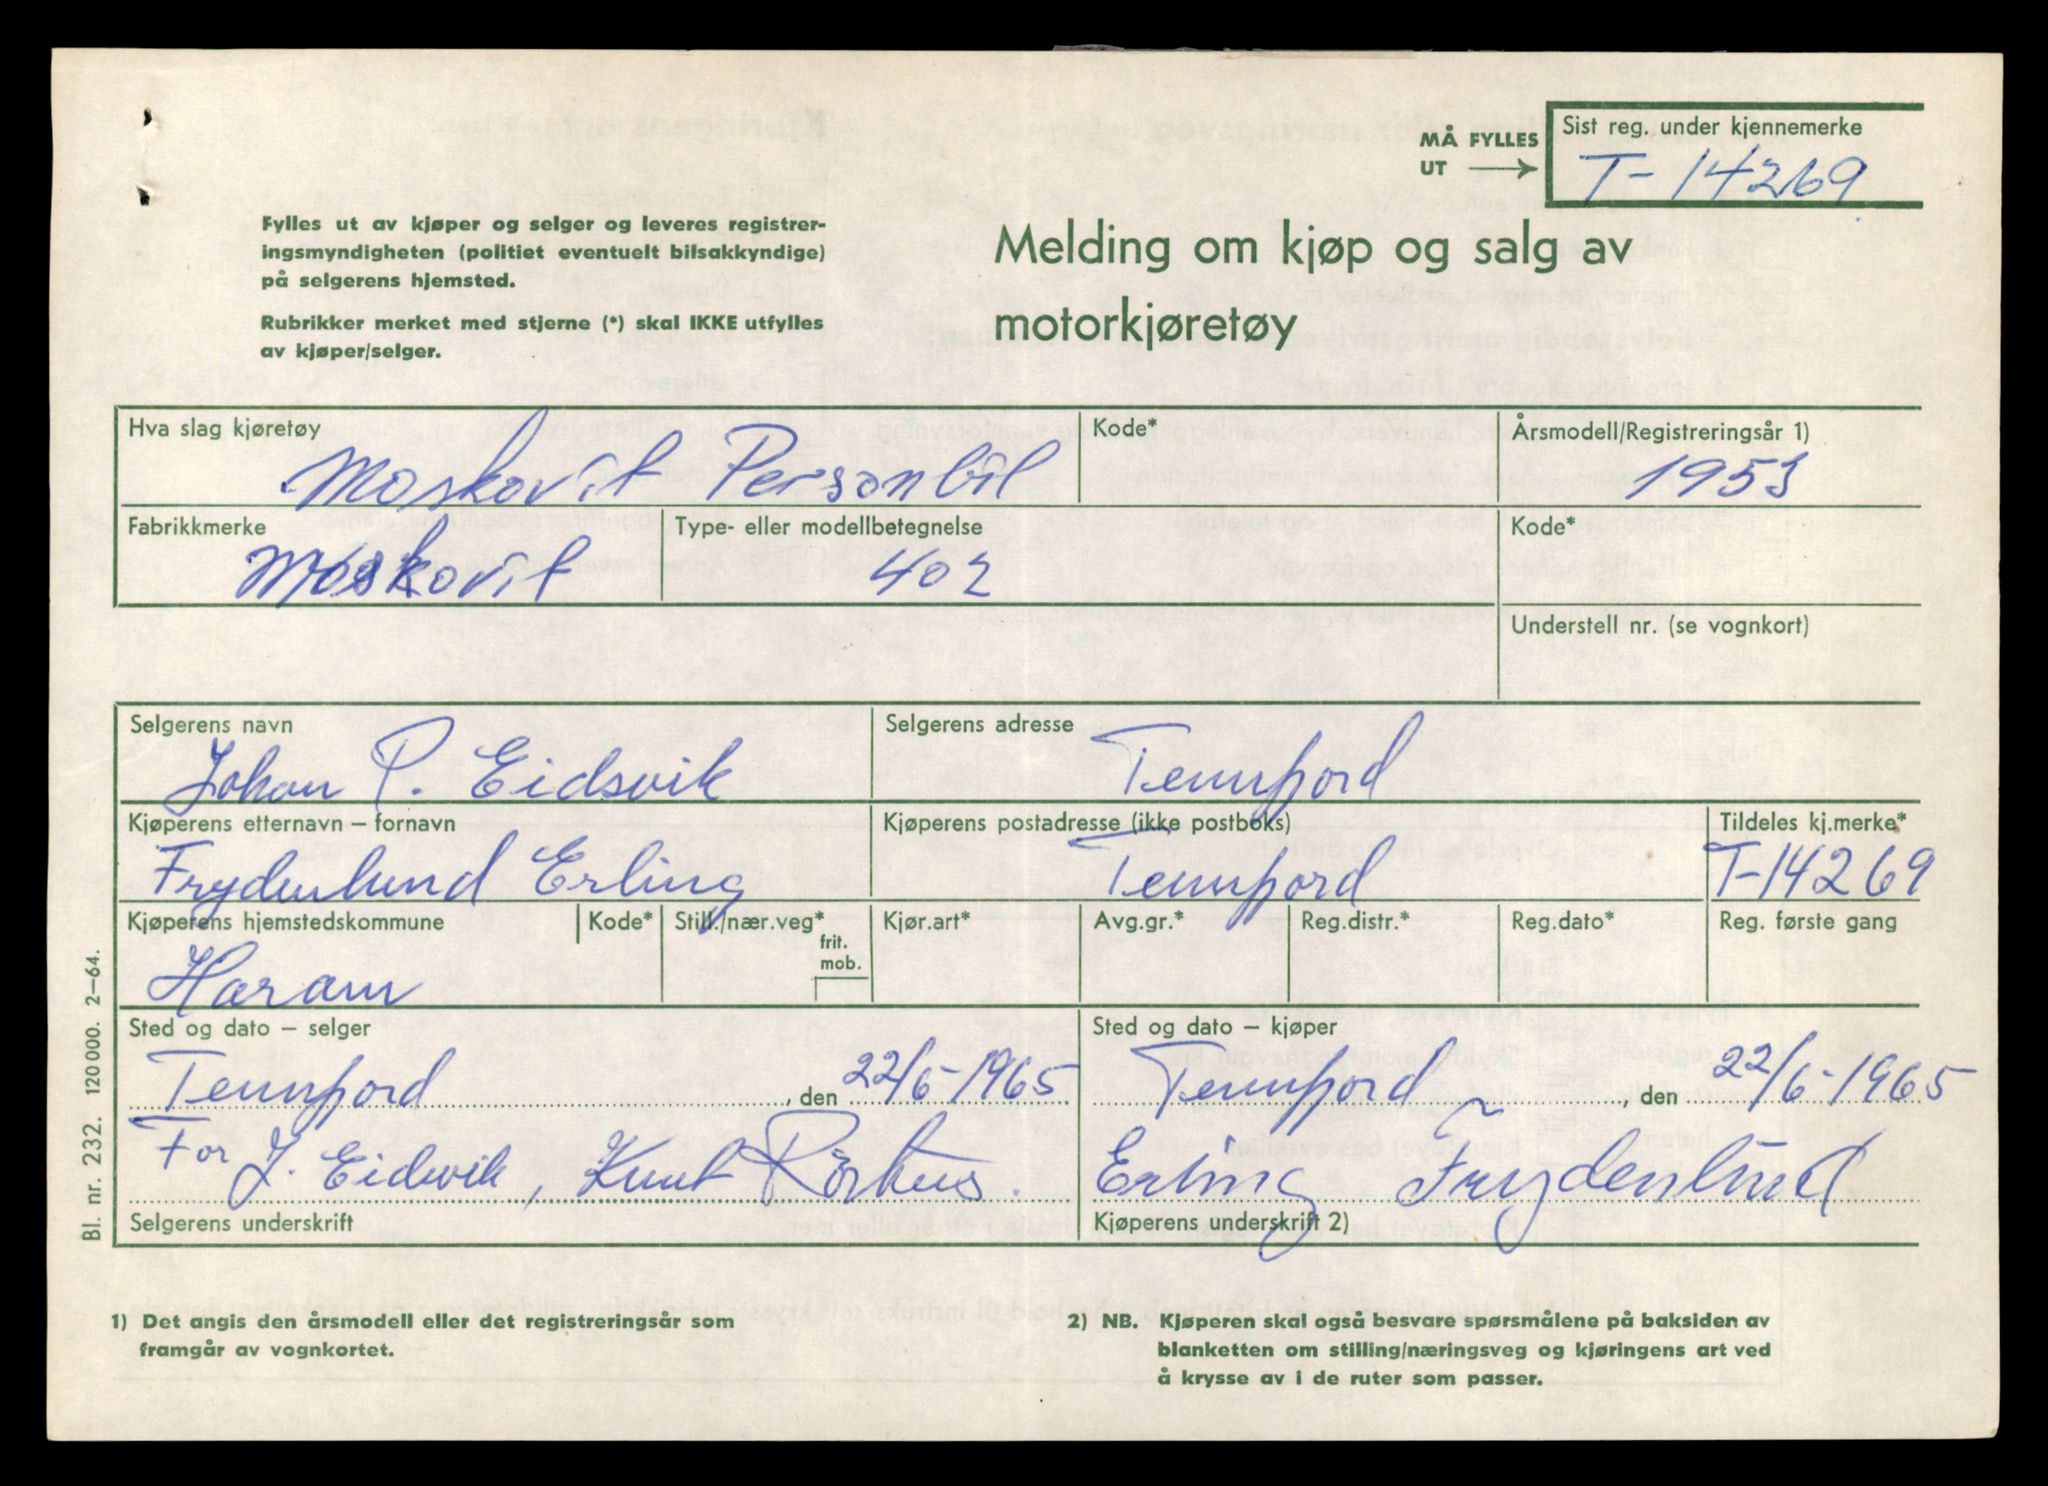 MÅ FYLLES
UT
Sist reg. under kjennemerke
T-14269
Fylles ut av kjøper og selger og leveres registrer-
ingsmyndigheten (politiet eventuelt bilsakkyndige)
på selgerens hjemsted.
Rubrikker merket med stjerne (*) skal IKKE utfylles
av kjøper/selger.
Melding om kjøp og salg av
motorkjøretøy
Hva slag kjøretøy
Moskovit Personbil
Kode*
Årsmodell/Registreringsår 1)
1953
Fabrikkmerke
Moskovit
Type- eller modellbetegnelse
402
Kode*
Understell nr. (se vognkort)
Selgerens navn
Johan P. Eidsvik
Selgerens adresse
Tennfjord
Kjøperens etternavn – fornavn
Frydenlund Erling
Kjøperens postadresse (ikke postboks)
Tennfjord
Tildeles kj.merke*
T-14269
Kjøperens hjemstedskommune
Haram
Kode*
Still./nær.veg*
frit.
mob.
Kjør.art*
Avg.gr.*
Reg.distr.*
Reg.dato*
Reg. første gang
Sted og dato – selger
Tennfjord, den 22/6-1965
For J. Eidsvik, Knut Rørhus.
Selgerens underskrift
Sted og dato – kjøper
Tennfjord, den 22/6-1965
Erling Frydenlund
Kjøperens underskrift 2)
Bl. nr. 232. 120 000. 2–64.
1) Det angis den årsmodell eller det registreringsår som
framgår av vognkortet.
2) NB. Kjøperen skal også besvare spørsmålene på baksiden av
blanketten om stilling/næringsveg og kjøringens art ved
å krysse av i de ruter som passer.